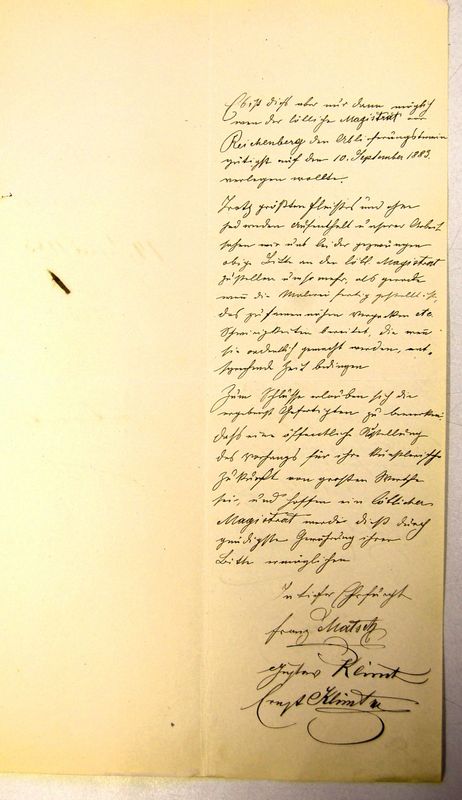 Es ist dieß aber nur dann möglich
wenn der löbliche Magistrat von
Reichenberg den Ablieferungstermin
gütigst auf den 10. September 1883.
verlegen wollte.
Trotz größten Fleißes und ohne
jedweden Aufenthalt unserer Arbeit
sehen wir uns leider gezwungen
obige Bitte an den löbl. Magistrat
zu stellen umso mehr, als gerade
wenn die Malerei fertig gestellt ist,
das zusammennähen verpacken etc.
Schwierigkeiten bereitet, die wenn
sie ordentlich gemacht werden, ent-
sprechende Zeit bedingen
Zum Schlusse erlauben sich die
ergebenst Gefertigten zu bemerken
daß eine öffentliche Ausstellung
des Vorhangs für ihre künstlerische
Zukunft von großem Werthe
sei, und hoffen ein löblicher
Magistrat werde dieß durch
gnädigste Gewährung ihrer
Bitte ermöglichen
In tiefer Ehrfurcht
Franz Matsch
Gustav Klimt
Ernst Klimt